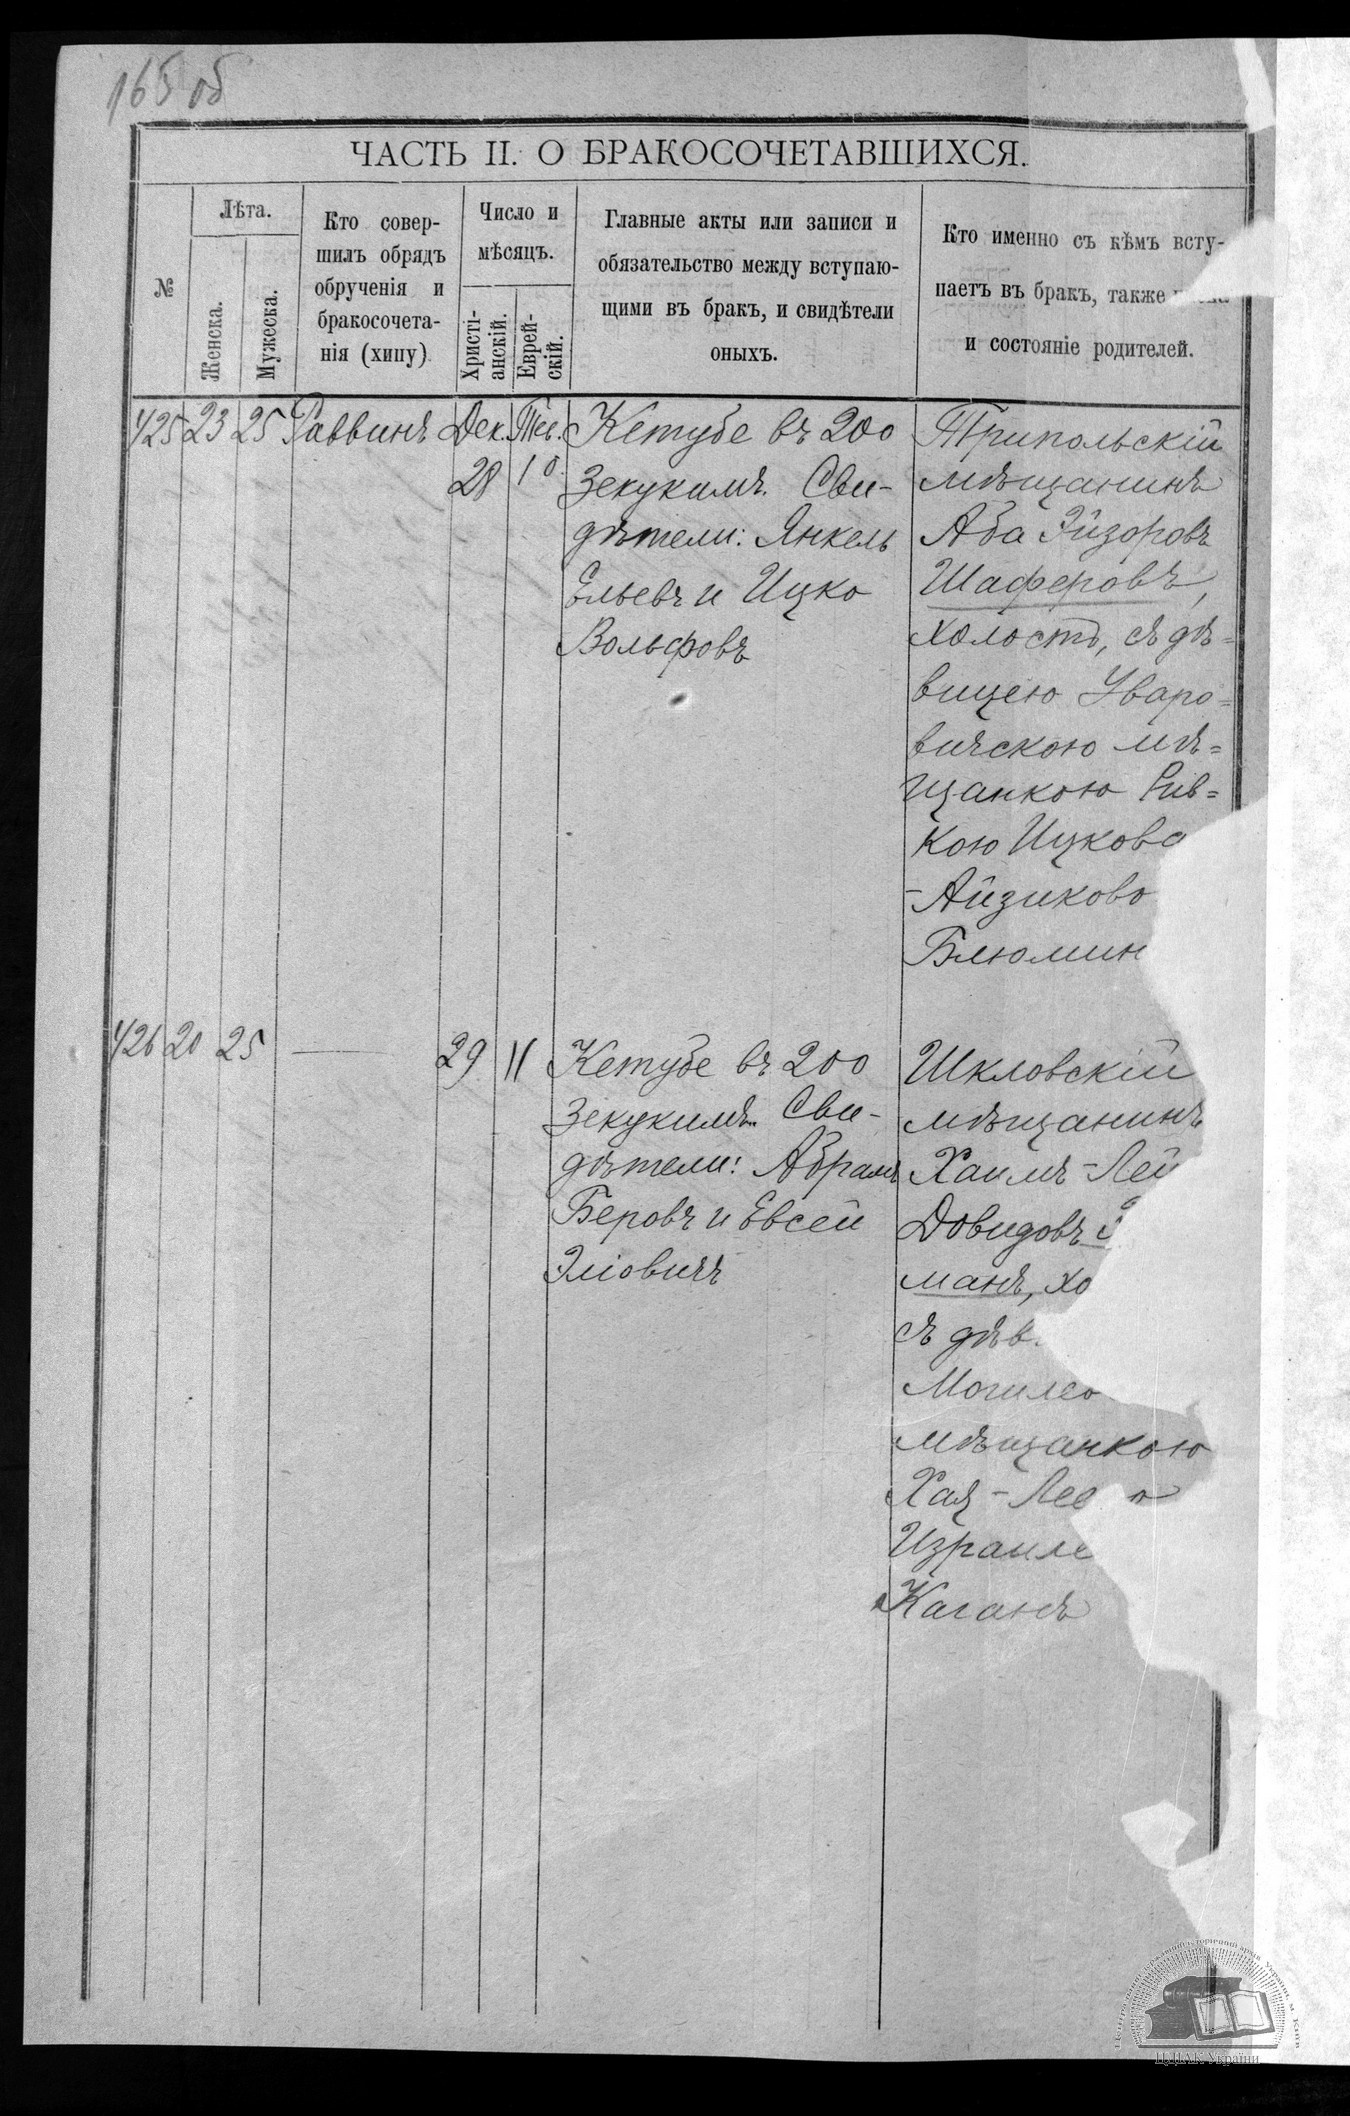 165 об
ЧАСТЬ II. О БРАКОСОЧЕТАВШИХСЯ.
№
Лѣта.
Женска.
Мужеска.
Кто совер-
шилъ обрядъ
обрученія и
бракосочета-
нія (хипу)
Число и
мѣсяцъ.
Христі-
анскій.
Еврей-
скій.
Главные акты или записи и
обязательство между вступаю-
щими въ бракъ, и свидѣтели
оныхъ.
Кто именно съ кѣмъ всту-
паетъ въ бракъ, также
и состояніе родителей.
425 23 25 Раввинъ Дек. Тев.
28 10
Кетубе въ 200
Зекукимъ. Сви-
дѣтели: Янкель
Ельевъ и Ицко
Вольфовъ
Трипольскій
мѣщанинъ
Аба Эйзоровъ
Шаферовъ,
холостъ, съ дѣ=
вицею Уваро=
вичскою мѣ=
щанкою Рив=
кою Ицкова
-Айзиково
Блюмин
426 20 25 — 29 11
Кетубе въ 200
Зекукимъ. Сви-
дѣтели: Абрамъ
Беровъ и Евсей
Эліовичъ
Шкловскій
мѣщанинъ
Хаимъ-Лей
Довидовъ
манъ, хо
съ дѣв
Могилев
мѣщанкою
Хая-
Израиле
Каганъ
ЦДІАК України